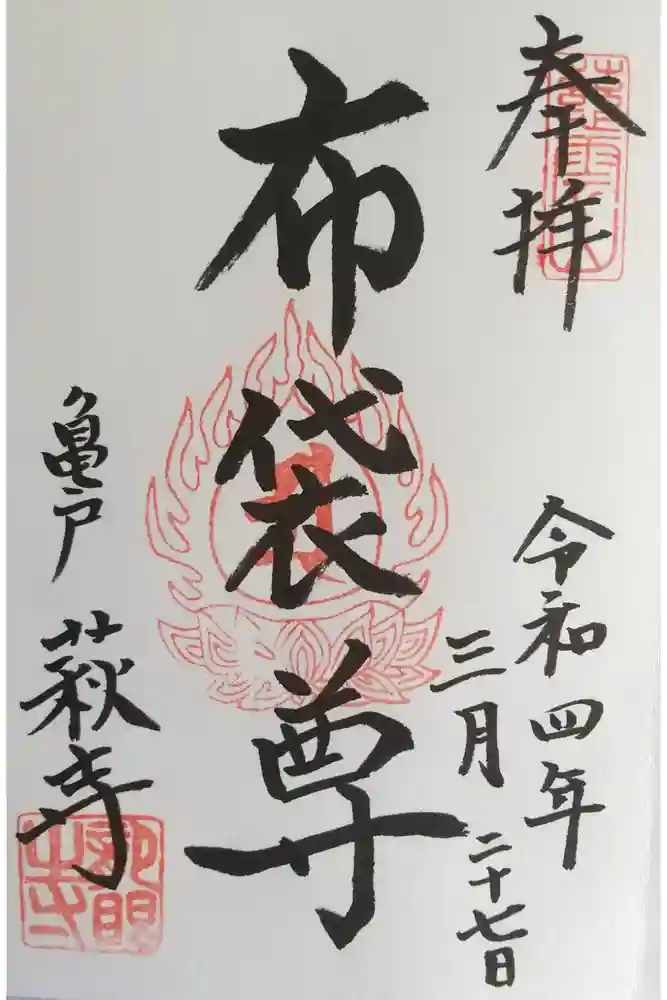 奉拝
令和四年
三月二十七日
布袋尊
亀戸 萩寺